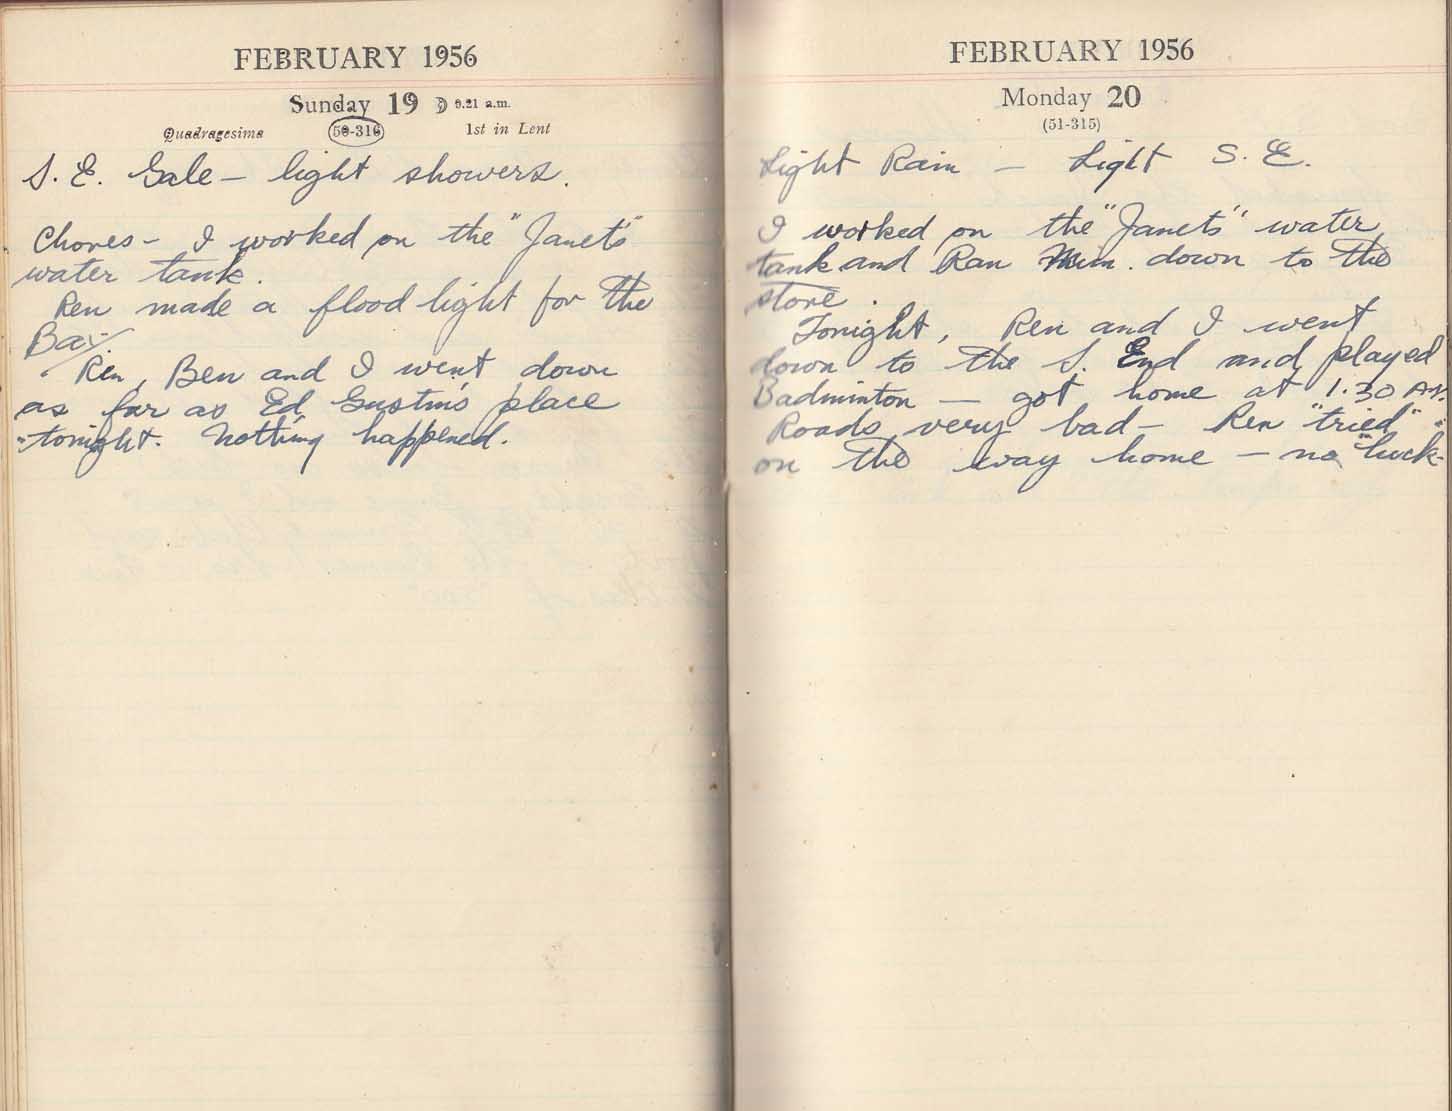 FEBRUARY 1956
Sunday 19 9.21 a.m.
Quadragesima (50-316) 1st in Lent
S. E. Gale – light showers.
Chores – I worked on the "Janet's"
water tank.
Ren made a flood light for the
Bay.
Ren, Ben and I went down
as far as Ed Gustin's place
tonight. Nothing happened.
FEBRUARY 1956
Monday 20
(51-315)
Light Rain – Light S. E.
I worked on the "Janet's" water
tank and Ran Mim. down to the
store.
Tonight, Ren and I went
down to the S. End and played
Badminton – got home at 1.30 A.M.
Roads very bad – Ren "tried"
on the way home – no "luck"